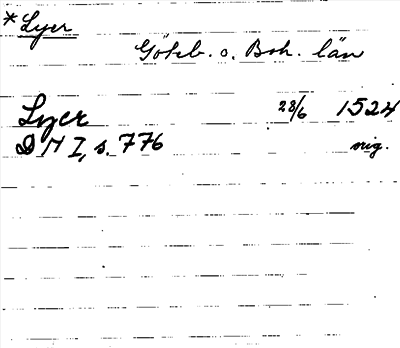 *Lyer
Göteb. o. Boh. län
Lyer 28/6 1524
D N I, s. 776 sig.